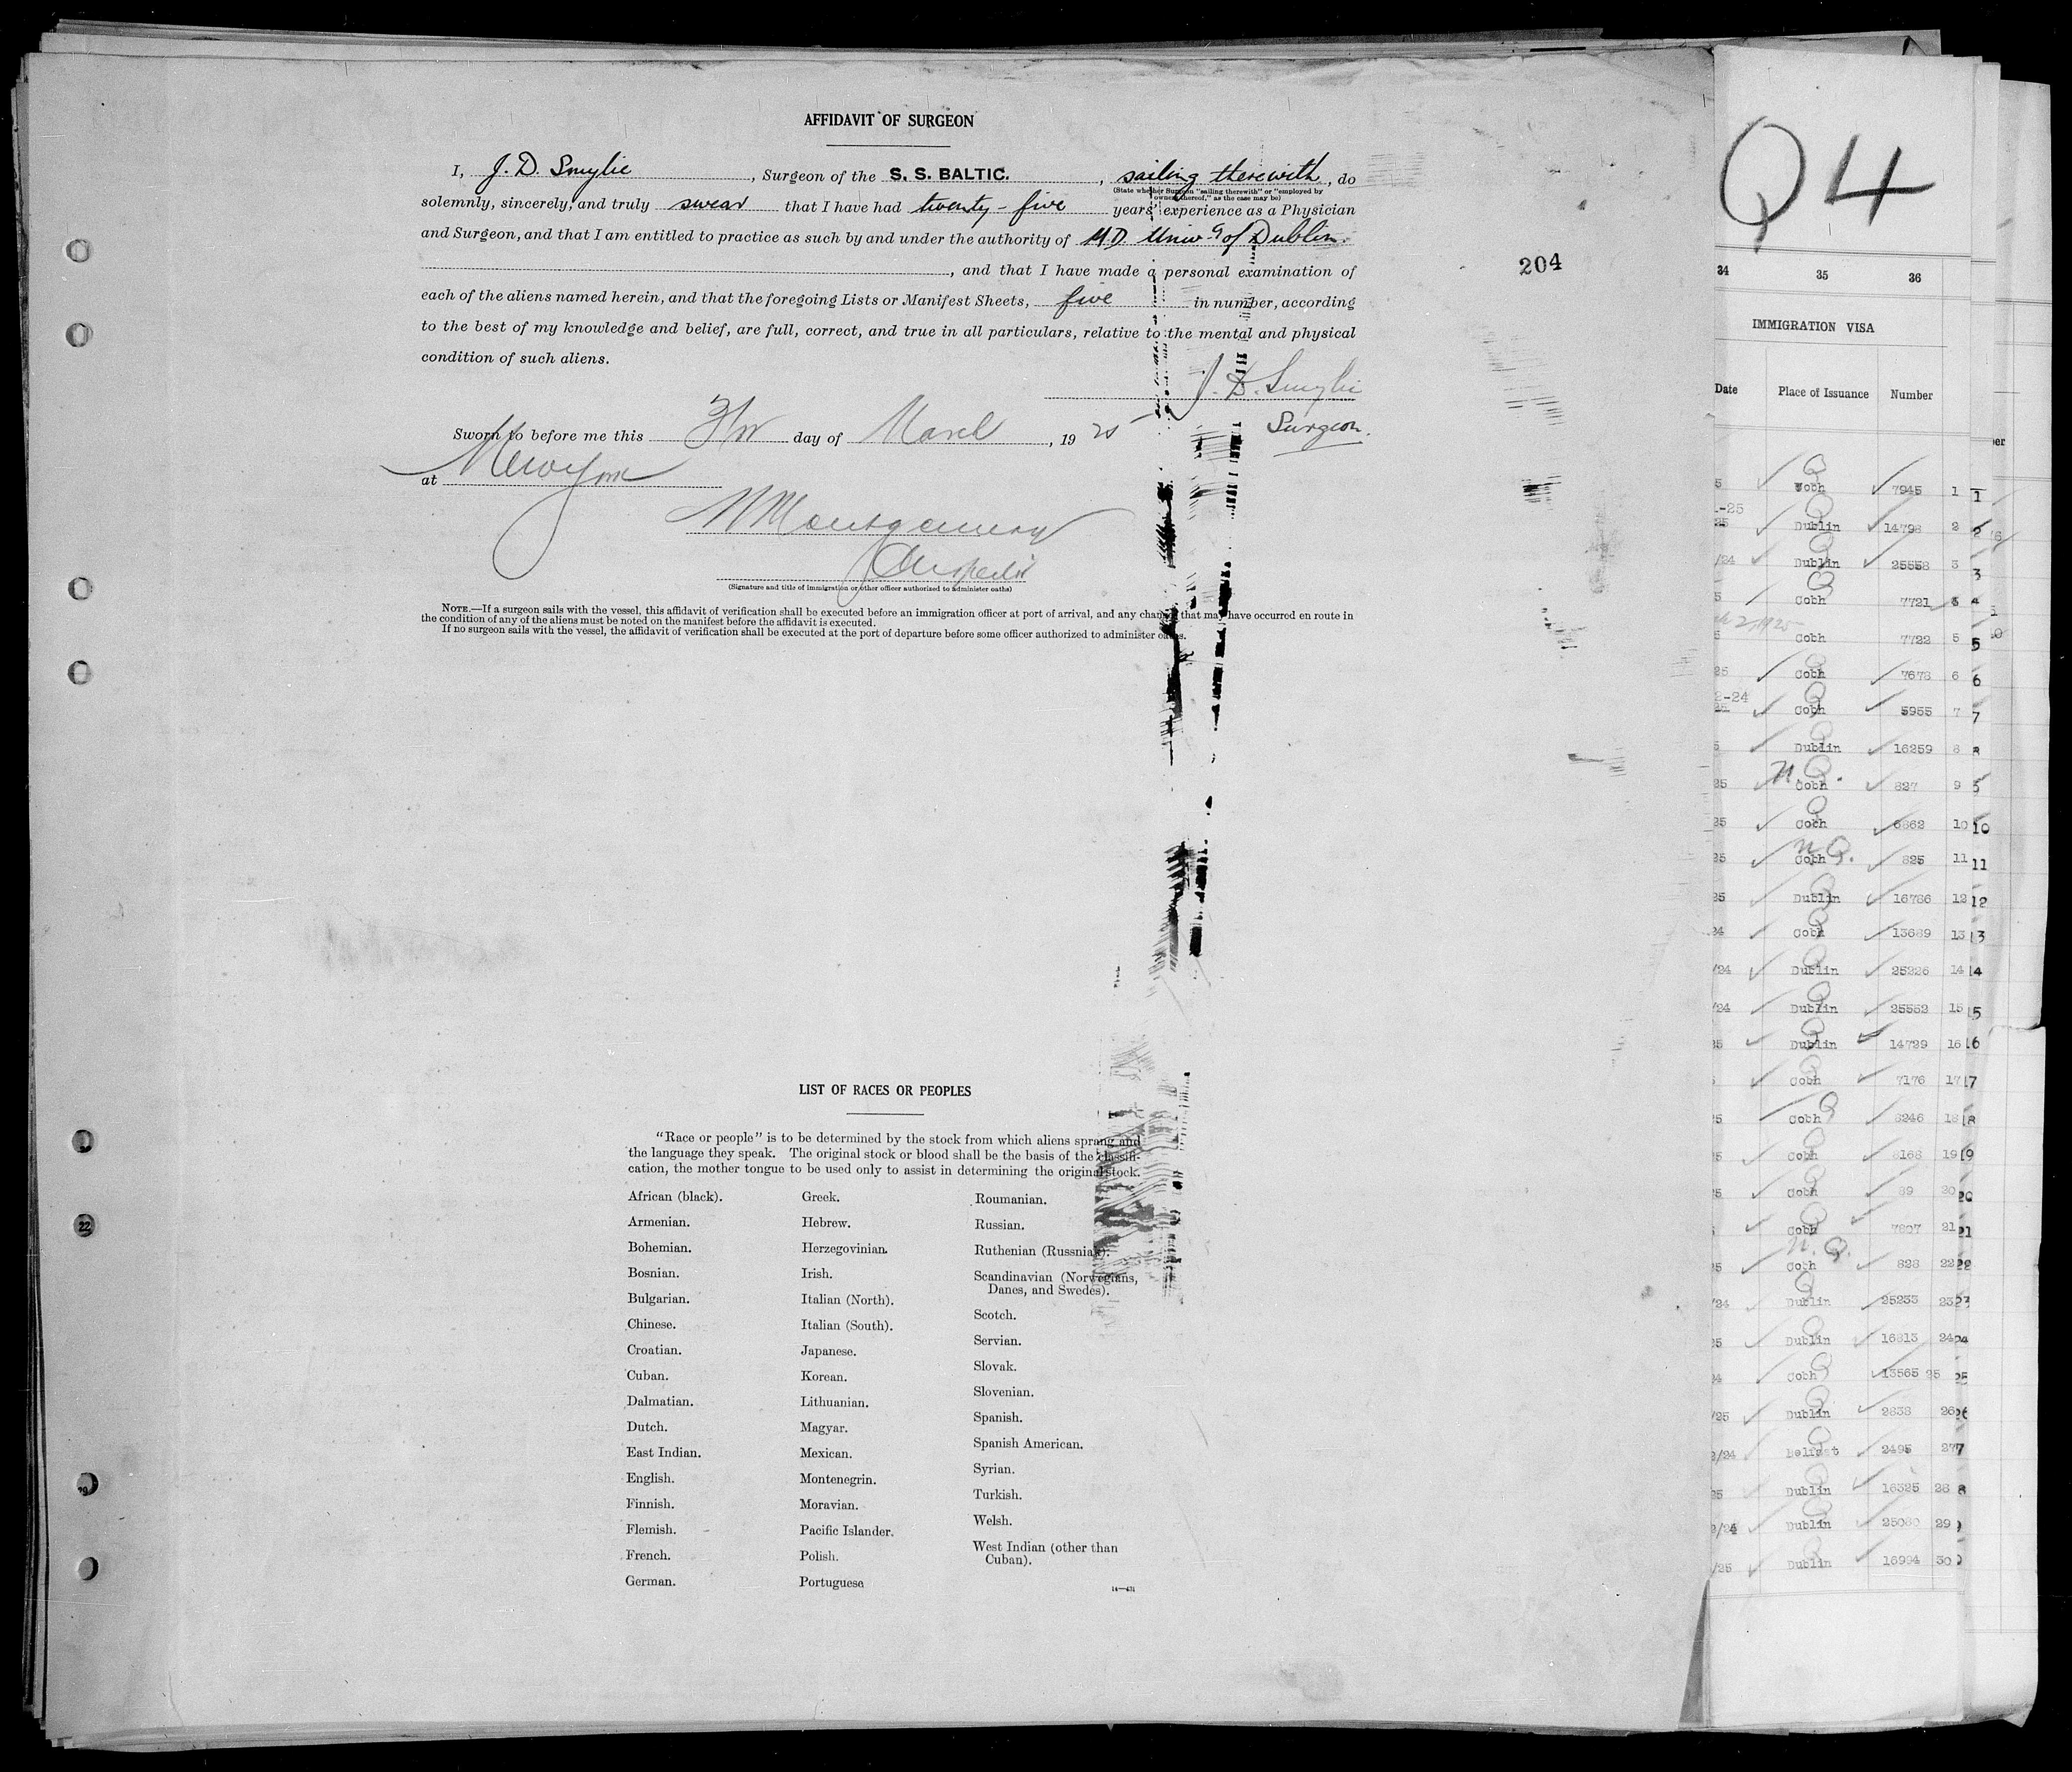 AFFIDAVIT OF SURGEON
I, J. D. Smylie, Surgeon of the S. S. BALTIC., sailing therewith, do
(State whether Surgeon "sailing therewith" or "employed by owners thereof," as the case may be)
solemnly, sincerely, and truly swear that I have had twenty-five years' experience as a Physician
and Surgeon, and that I am entitled to practice as such by and under the authority of M.D. Univ of Dublin.
, and that I have made a personal examination of
each of the aliens named herein, and that the foregoing Lists or Manifest Sheets, five in number, according
to the best of my knowledge and belief, are full, correct, and true in all particulars, relative to the mental and physical
condition of such aliens.
J. D. Smylie
Surgeon.
Sworn to before me this day of March, 1925
at New York
Montgomery
Inspector
(Signature and title of immigration or other officer authorized to administer oaths)
NOTE.—If a surgeon sails with the vessel, this affidavit of verification shall be executed before an immigration officer at port of arrival, and any change that may have occurred en route in
the condition of any of the aliens must be noted on the manifest before the affidavit is executed.
If no surgeon sails with the vessel, the affidavit of verification shall be executed at the port of departure before some officer authorized to administer oaths.
204
LIST OF RACES OR PEOPLES
"Race or people" is to be determined by the stock from which aliens sprang and
the language they speak. The original stock or blood shall be the basis of the classifi-
cation, the mother tongue to be used only to assist in determining the original stock.
African (black).
Armenian.
Bohemian.
Bosnian.
Bulgarian.
Chinese.
Croatian.
Cuban.
Dalmatian.
Dutch.
East Indian.
English.
Finnish.
Flemish.
French.
German.
Greek.
Hebrew.
Herzegovinian.
Irish.
Italian (North).
Italian (South).
Japanese.
Korean.
Lithuanian.
Magyar.
Mexican.
Montenegrin.
Moravian.
Pacific Islander.
Polish.
Portuguese
Roumanian.
Russian.
Ruthenian (Russniak).
Scandinavian (Norwegians,
Danes, and Swedes).
Scotch.
Servian.
Slovak.
Slovenian.
Spanish.
Spanish American.
Syrian.
Turkish.
Welsh.
West Indian (other than
Cuban).
22
Q4
34 35 36
IMMIGRATION VISA
Date Place of Issuance Number
Cobh 7945 1
Dublin 14798 2
Dublin 25558 3
Cobh 7721
Cobh 7722 5
Cobh 7678 6
Cobh 5955 7
Dublin 16259 8
N.Q. Cobh 827 9
Cobh 6862 10
N.Q. Cobh 825 11
Dublin 16786 12
Cobh 13689 13
Dublin 25226 14
Dublin 25552 15
Dublin 14729 16
Cobh 7176 17
Cobh 8246 18
Cobh 8168 19
Cobh 89 20
Cobh 7807 21
N.Q. Cobh 828 22
Dublin 25233 23
Dublin 16813 24
Cobh 13565 25
Dublin 2838 26
Belfast 2495 27
Dublin 16325 28
Dublin 25080 29
Dublin 16994 30